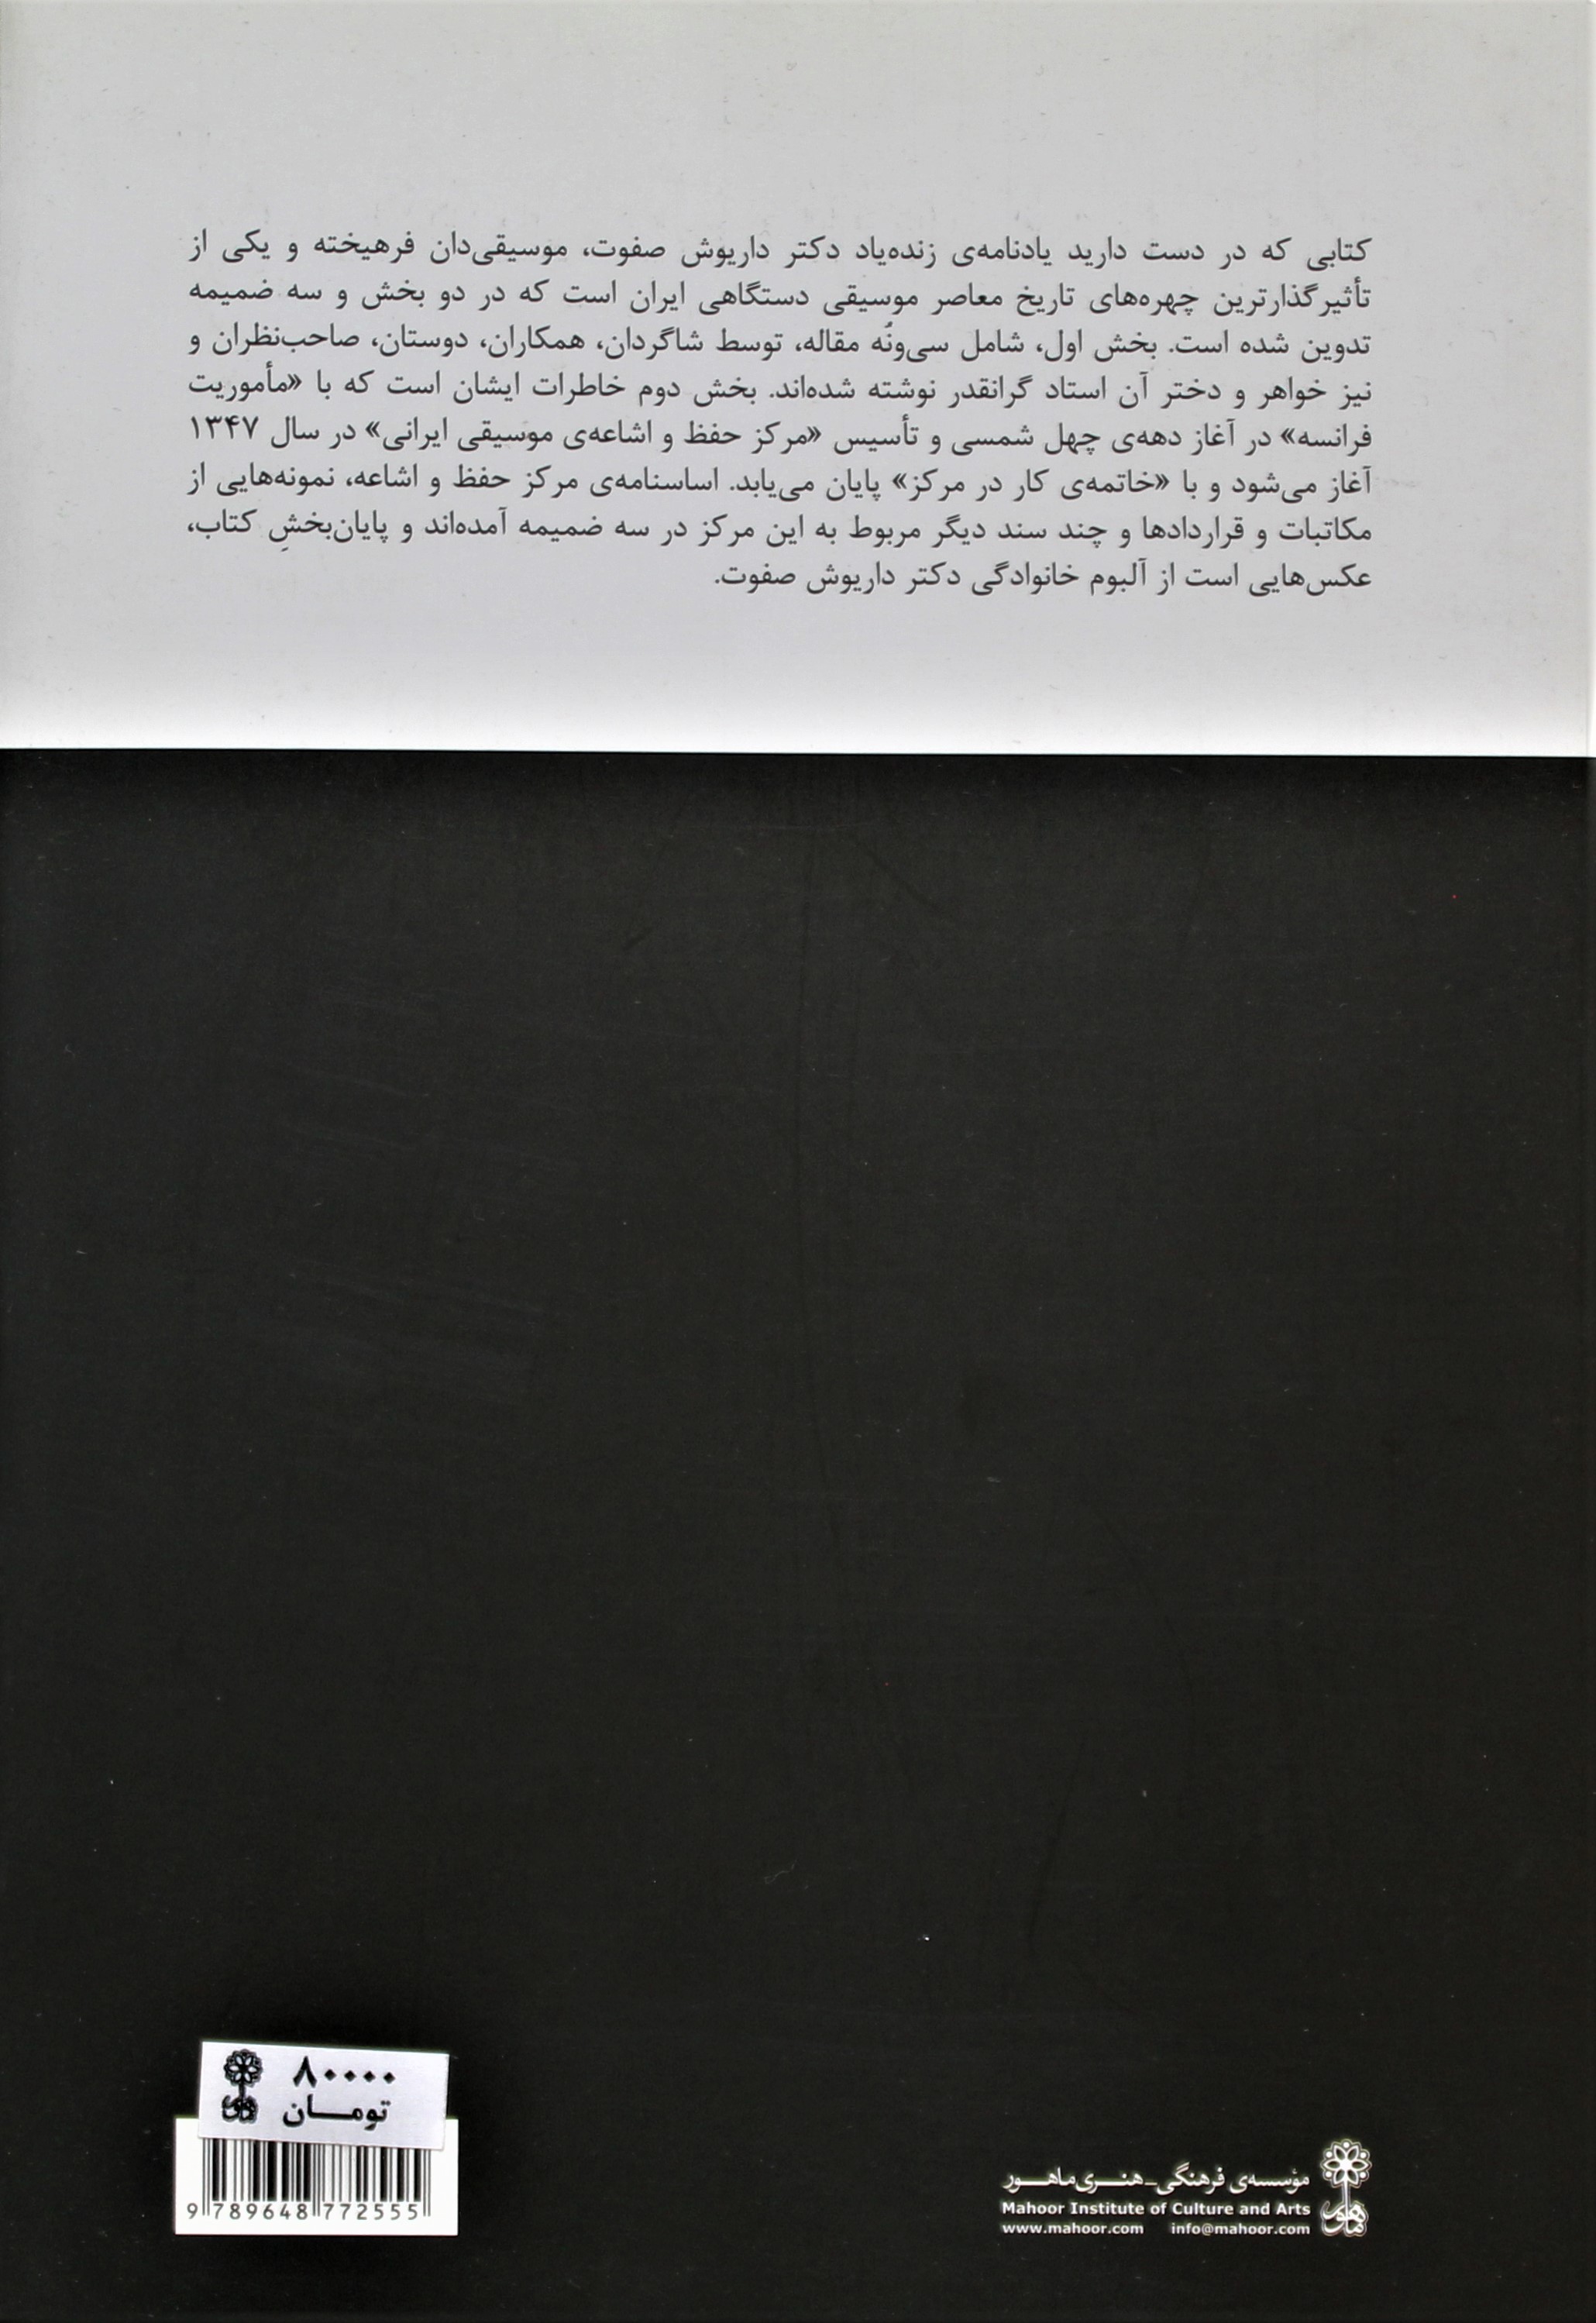 کتابی که در دست دارید یادنامه‌ی زنده‌یاد دکتر داریوش صفوت، موسیقی‌دان فرهیخته و یکی از
تأثیرگذارترین چهره‌های تاریخ معاصر موسیقی دستگاهی ایران است که در دو بخش و سه ضمیمه
تدوین شده است. بخش اول، شامل سی‌ونُه مقاله، توسط شاگردان، همکاران، دوستان، صاحب‌نظران و
نیز خواهر و دختر آن استاد گرانقدر نوشته شده‌اند. بخش دوم خاطرات ایشان است که با «مأموریت
فرانسه» در آغاز دهه‌ی چهل شمسی و تأسیس «مرکز حفظ و اشاعه‌ی موسیقی ایرانی» در سال ۱۳۴۷
آغاز می‌شود و با «خاتمه‌ی کار در مرکز» پایان می‌یابد. اساسنامه‌ی مرکز حفظ و اشاعه، نمونه‌هایی از
مکاتبات و قراردادها و چند سند دیگر مربوط به این مرکز در سه ضمیمه آمده‌اند و پایان‌بخشِ کتاب،
عکس‌هایی است از آلبوم خانوادگی دکتر داریوش صفوت.
۸۰۰۰۰
تومـــان
ماهور
9 789648 772555
مؤسسه‌ی فرهنگی_هنـــری ماهـــور
Mahoor Institute of Culture and Arts
www.mahoor.com info@mahoor.com
ماهور